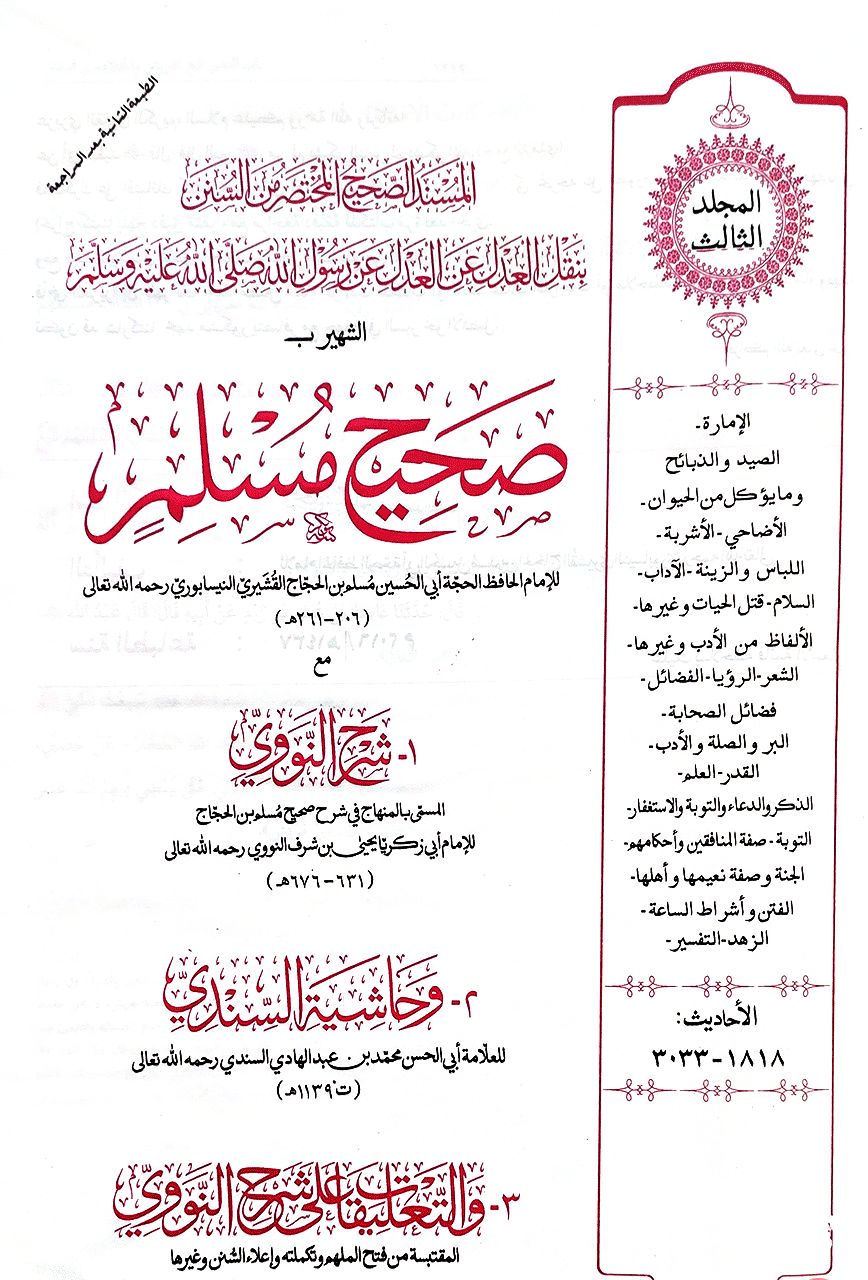 الطبعة الثانية بعد المراجعة
المسند الصحيح المختصر من السنن
بنقل العدل عن العدل عن رسول الله صلى الله عليه وسلم
الشهير ب
صحيح مسلم
للإمام الحافظ الحجة أبي الحسين مسلم بن الحجاج القشيري النيسابوري رحمه الله تعالى
(٢٠٦-٢٦١هـ)
مع
١- شرح النووي
المسمى بالمنهاج في شرح صحيح مسلم بن الحجاج
للإمام أبي زكريا يحيى بن شرف النووي رحمه الله تعالى
(٦٣١-٦٧٦هـ)
٢- وحاشية السندي
للعلامة أبي الحسن محمد بن عبد الهادي السندي رحمه الله تعالى
(ت ١١٣٩هـ)
٣- والتعليقات على شرح النووي
المقتبسة من فتح الملهم وتكملته وإعلاء السنن وغيرها
المجلد
الثالث
الإمارة-
الصيد والذبائح
وما يؤكل من الحيوان-
الأضاحي-الأشربة-
اللباس والزينة-الآداب-
السلام-قتل الحيات وغيرها-
الألفاظ من الأدب وغيرها-
الشعر-الرؤيا-الفضائل-
فضائل الصحابة-
البر والصلة والأدب-
القدر-العلم-
الذكر والدعاء والتوبة والاستغفار-
التوبة-صفة المنافقين وأحكامهم-
الجنة وصفة نعيمها وأهلها-
الفتن وأشراط الساعة-
الزهد-التفسير-
الأحاديث:
١٨١٨-٣٠٣٣